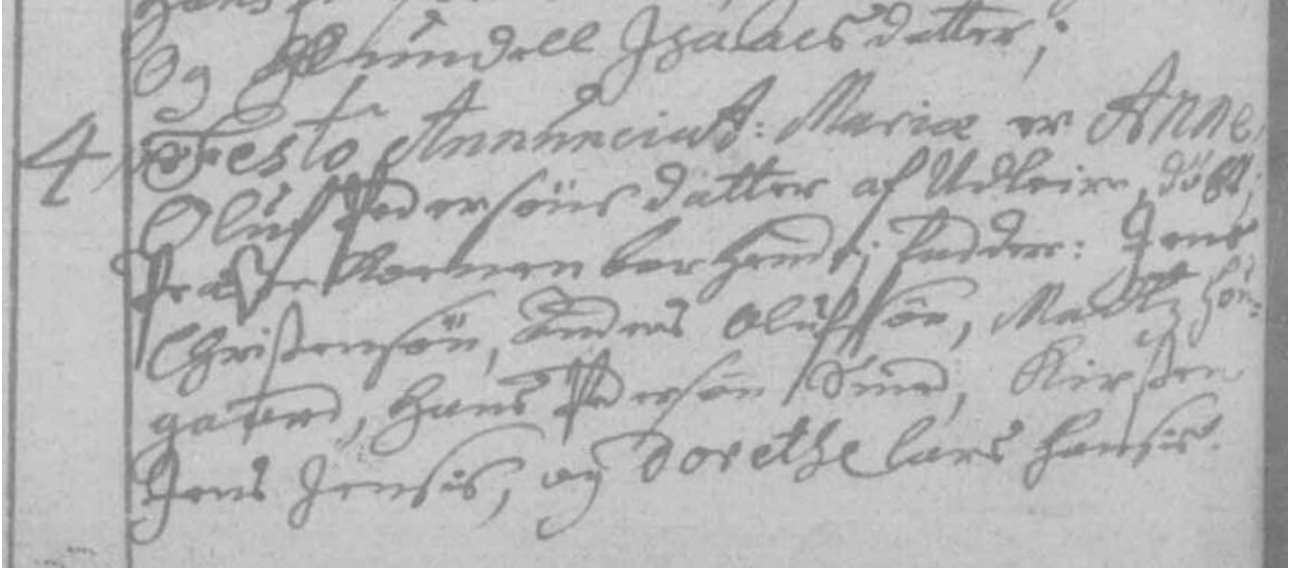 Og Mündell Isaacs datter;
4, Festo Annunciat: Mariæ er Anne
Oluf Pedersöns datter af Udleire, döbt;
Præste Konen bar hende; Fadder: Jens
Christensön, Anders Olufssön, Madtz Hön-
gaard, Hans Pedersön Smed, Kirsten
Jens Jensis, og Dorethe Lars Hansis.